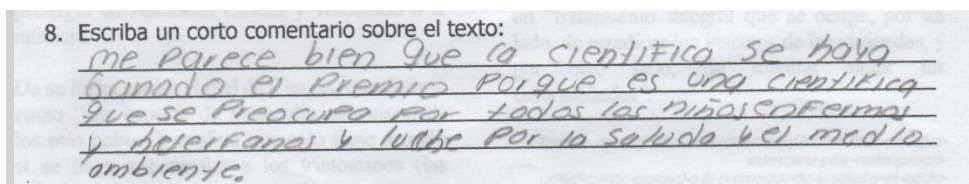 8. Escriba un corto comentario sobre el texto:
me parece bien que la científica se haya
ganado el premio porque es una científica
que se preocupa por todos los niños enfermos
y huerfanos y luche por la saluda y el medio
ambiente.